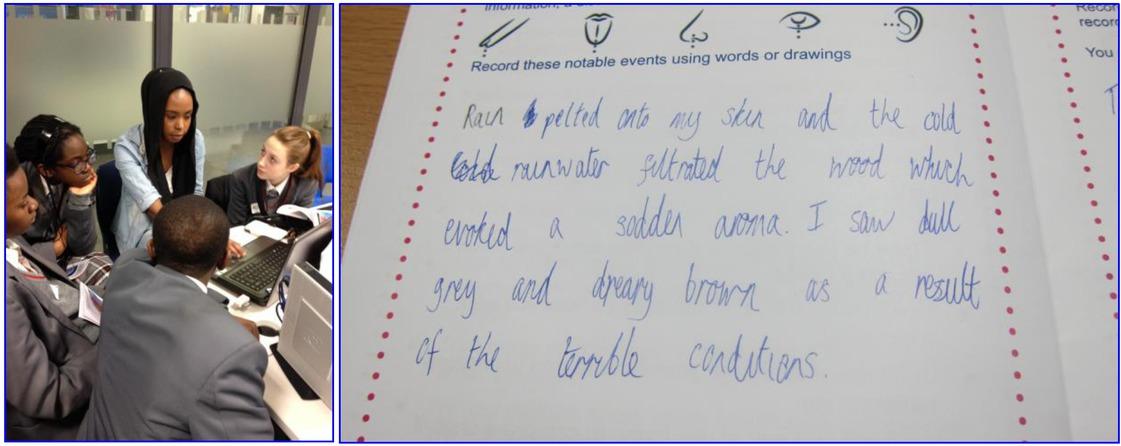 Record these notable events using words or drawings
Rain pelted onto my skin and the cold
rainwater filtrated the wood which
evoked a sodden aroma. I saw dull
grey and dreary brown as a result
of the terrible conditions.
You